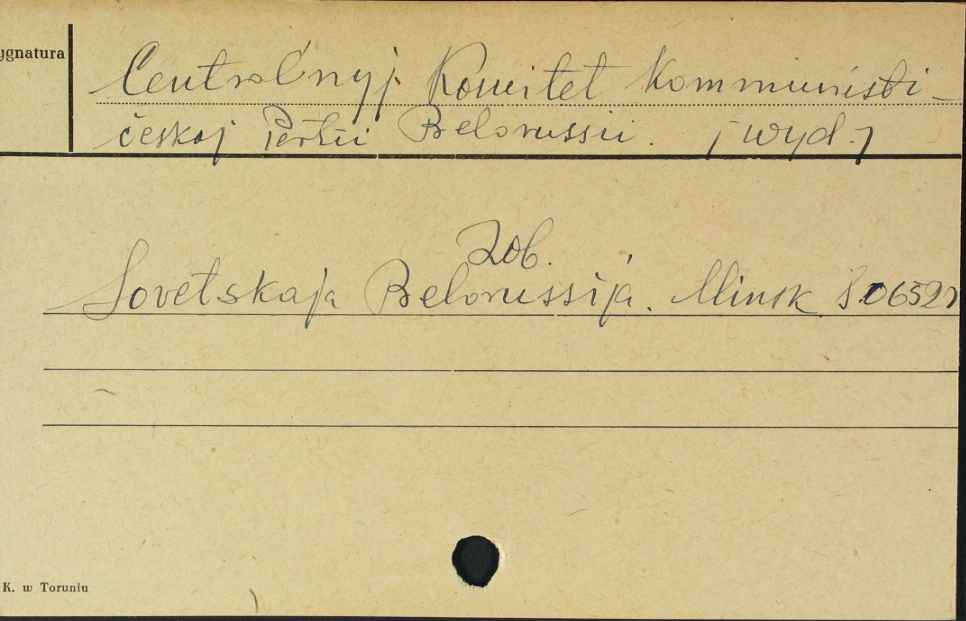 ygnatura
Central'nyj Komitet Kommunisti-
českoj Partii Belorussii. [wyd.]
Zob.
Sovetskaja Belorussija. Minsk S.06521
K. w Toruniu